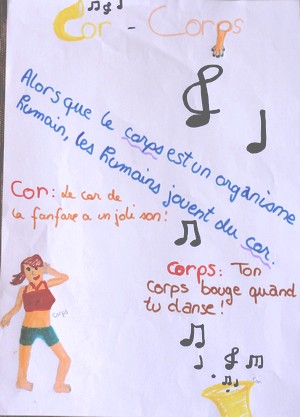 Cor - Corps
Alors que le corps est un organisme
humain, les humains jouent du cor.
Cor: Le cor de
la fanfare a un joli son!
Corps: Ton
corps bouge quand
tu danse!
Corps